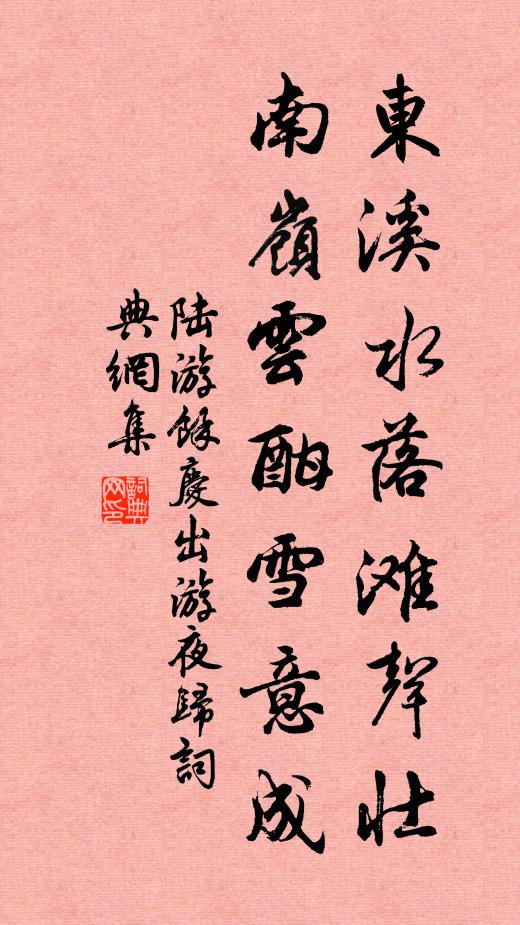 東溪水落滩聲壯
南嶺雲酣雪意成
陆游餘慶出游夜歸詞
典網集
詞典
网印